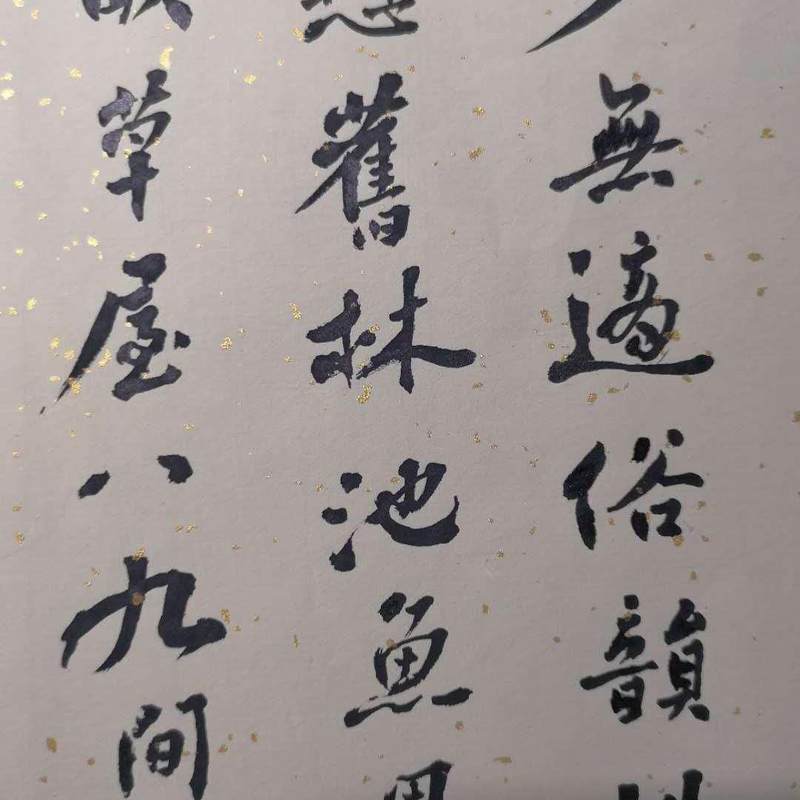 少無適俗韻
戀舊林池魚思
畝草屋八九間